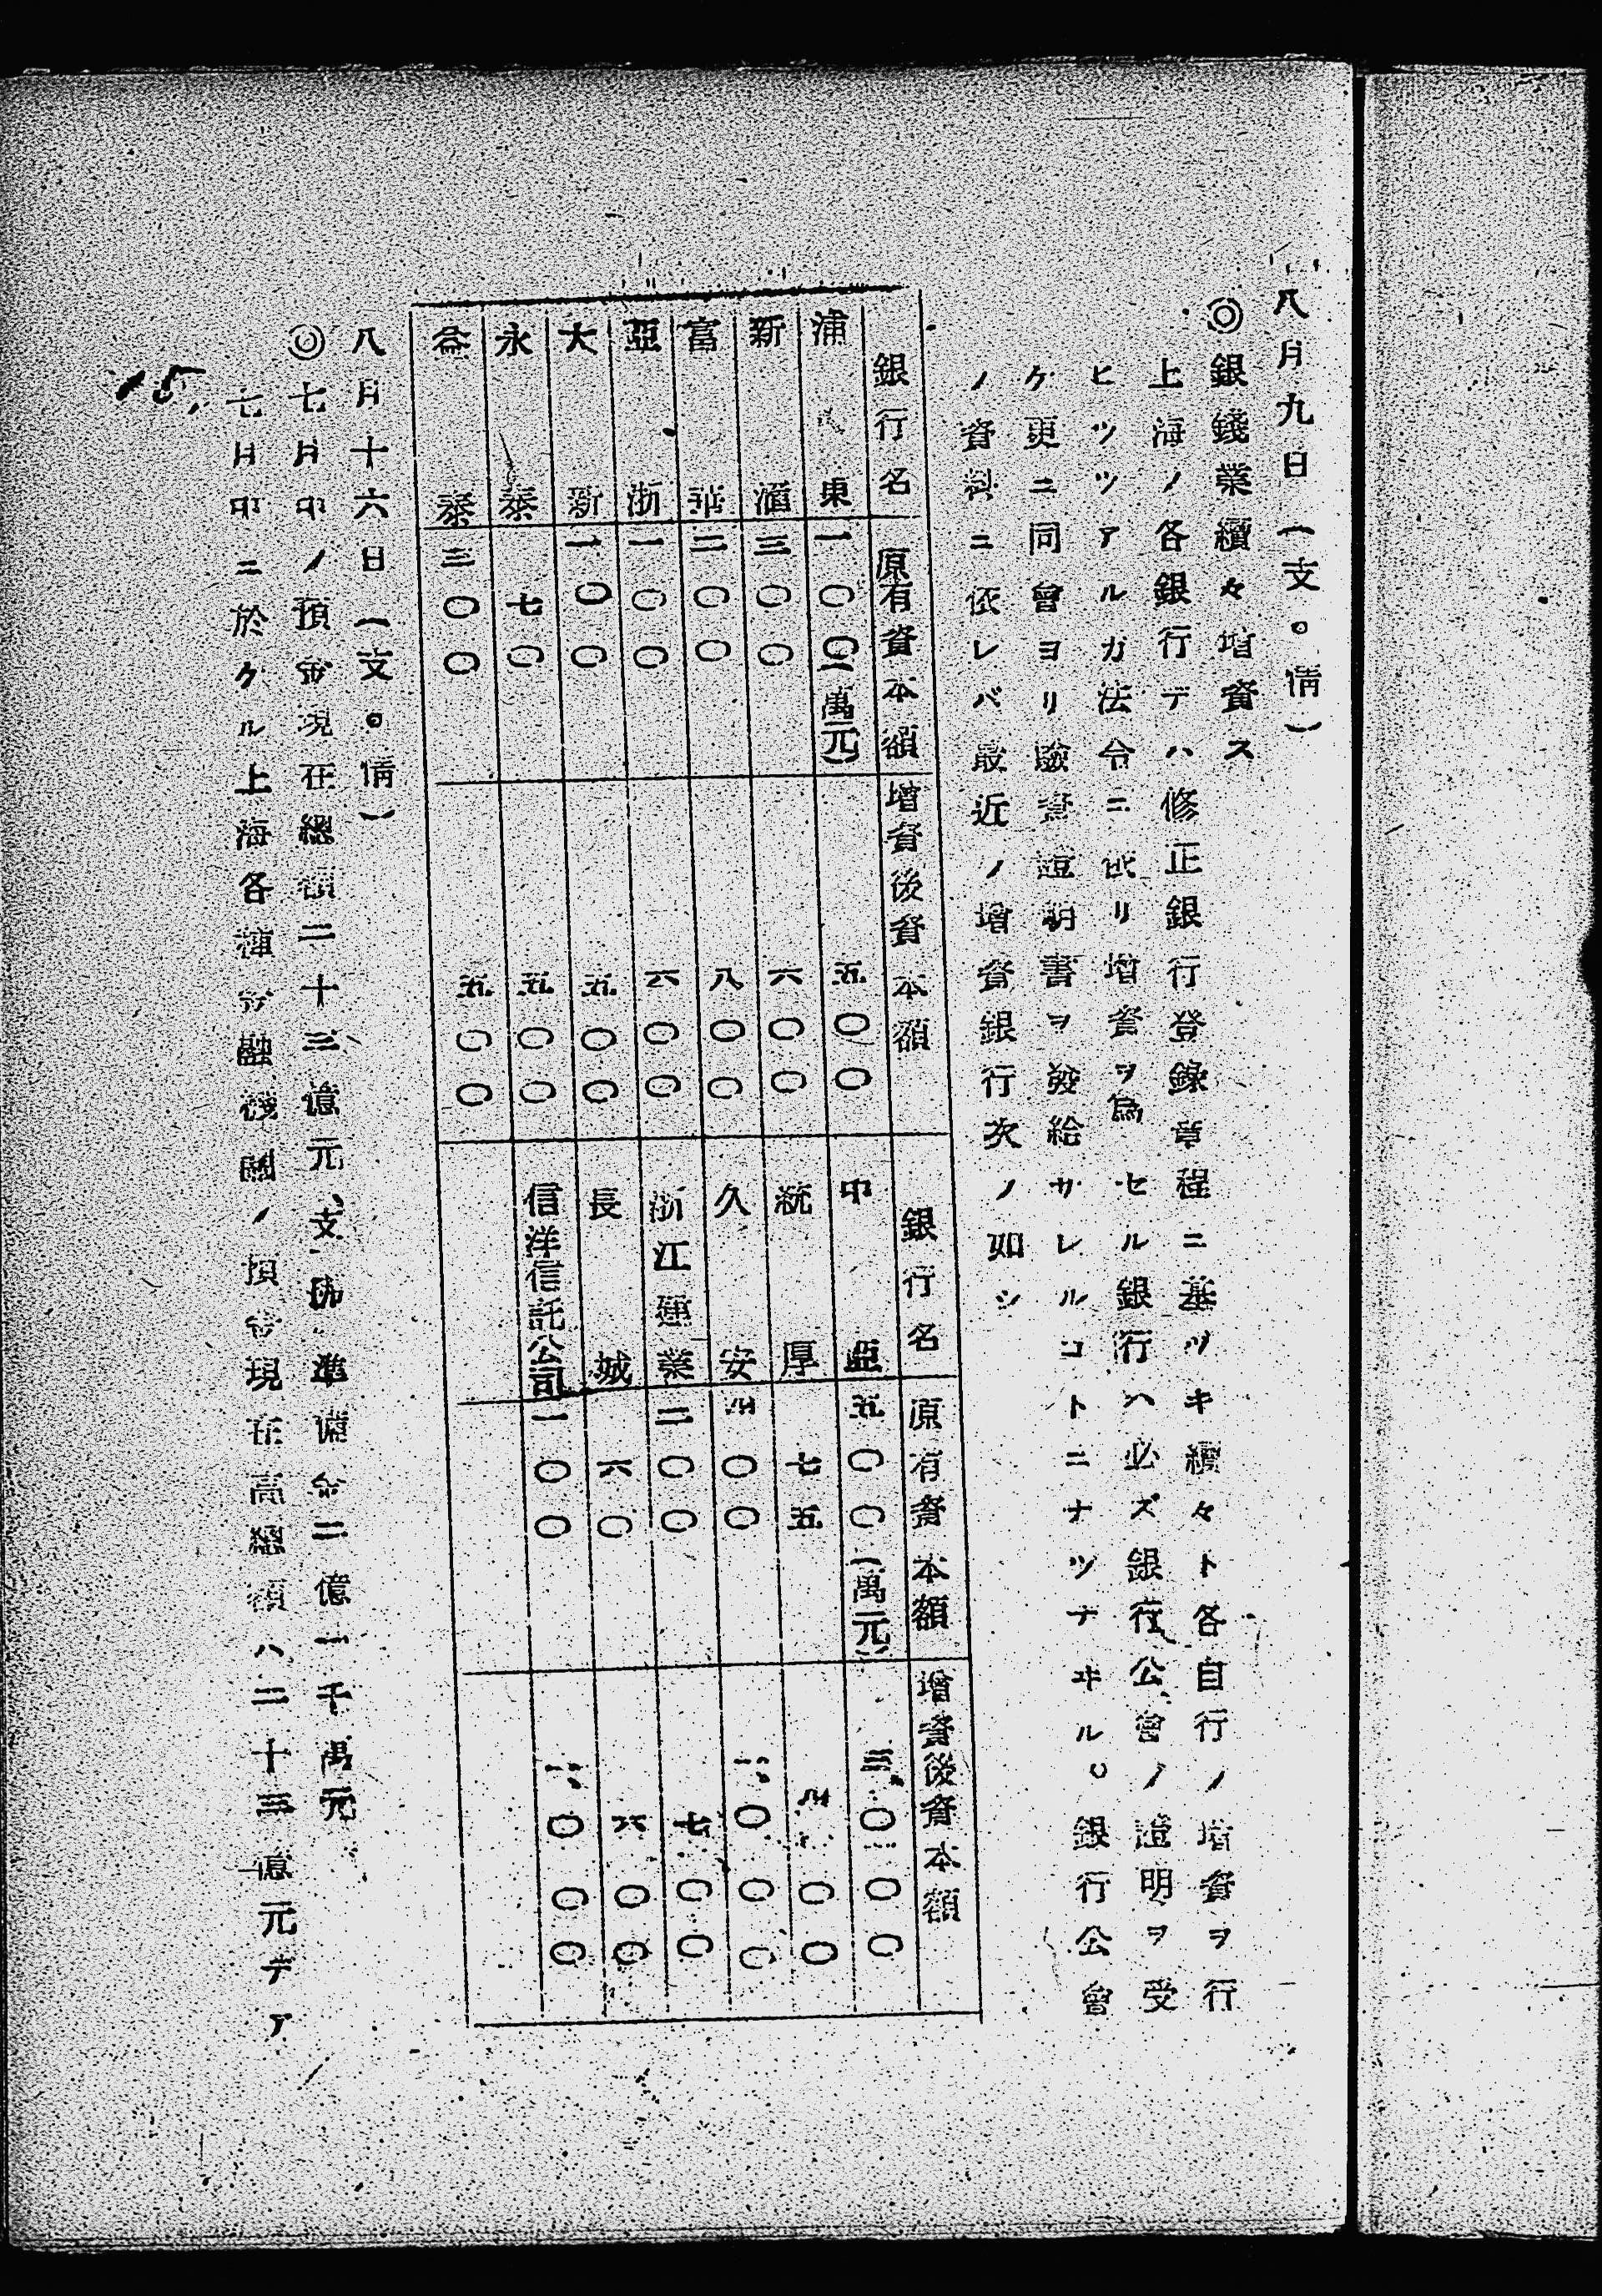 八月九日(支。情)
◎銀錢業續々增資ス
上海ノ各銀行デハ修正銀行登錄章程ニ基ヅキ續々ト各自行ノ增資ヲ行
ヒツツアルガ法令ニ依リ增資ヲ爲セル銀行ハ必ズ銀行公會ノ證明ヲ受
ケ更ニ同會ヨリ驗資證明書ヲ發給サレルコトニナツテヰル。銀行公會
ノ資料ニ依レバ最近ノ增資銀行次ノ如シ
銀行名 原有資本額 增資後資本額 銀行名 原有資本額 增資後資本額
浦東 一〇〇(萬元) 五〇〇 中亞 五〇〇(萬元) 三、〇〇〇
新滙 三〇〇 六〇〇 統厚 七五 四〇〇
富華 二〇〇 八〇〇 久安 四〇〇 一、〇〇〇
亞浙 一〇〇 六〇〇 浙江建業 二〇〇 七〇〇
大新 一〇〇 五〇〇 長城 六〇 六〇〇
永泰 七〇 五〇〇 信洋信託公司 一〇〇 一、〇〇〇
益泰 三〇〇 五〇〇
八月十六日(支。情)
◎七月中ノ預金現在總額二十三億元、支拂準備金二億一千萬元
七月中ニ於ケル上海各種金融機關ノ預金現在高總額ハ二十三億元デア
15.